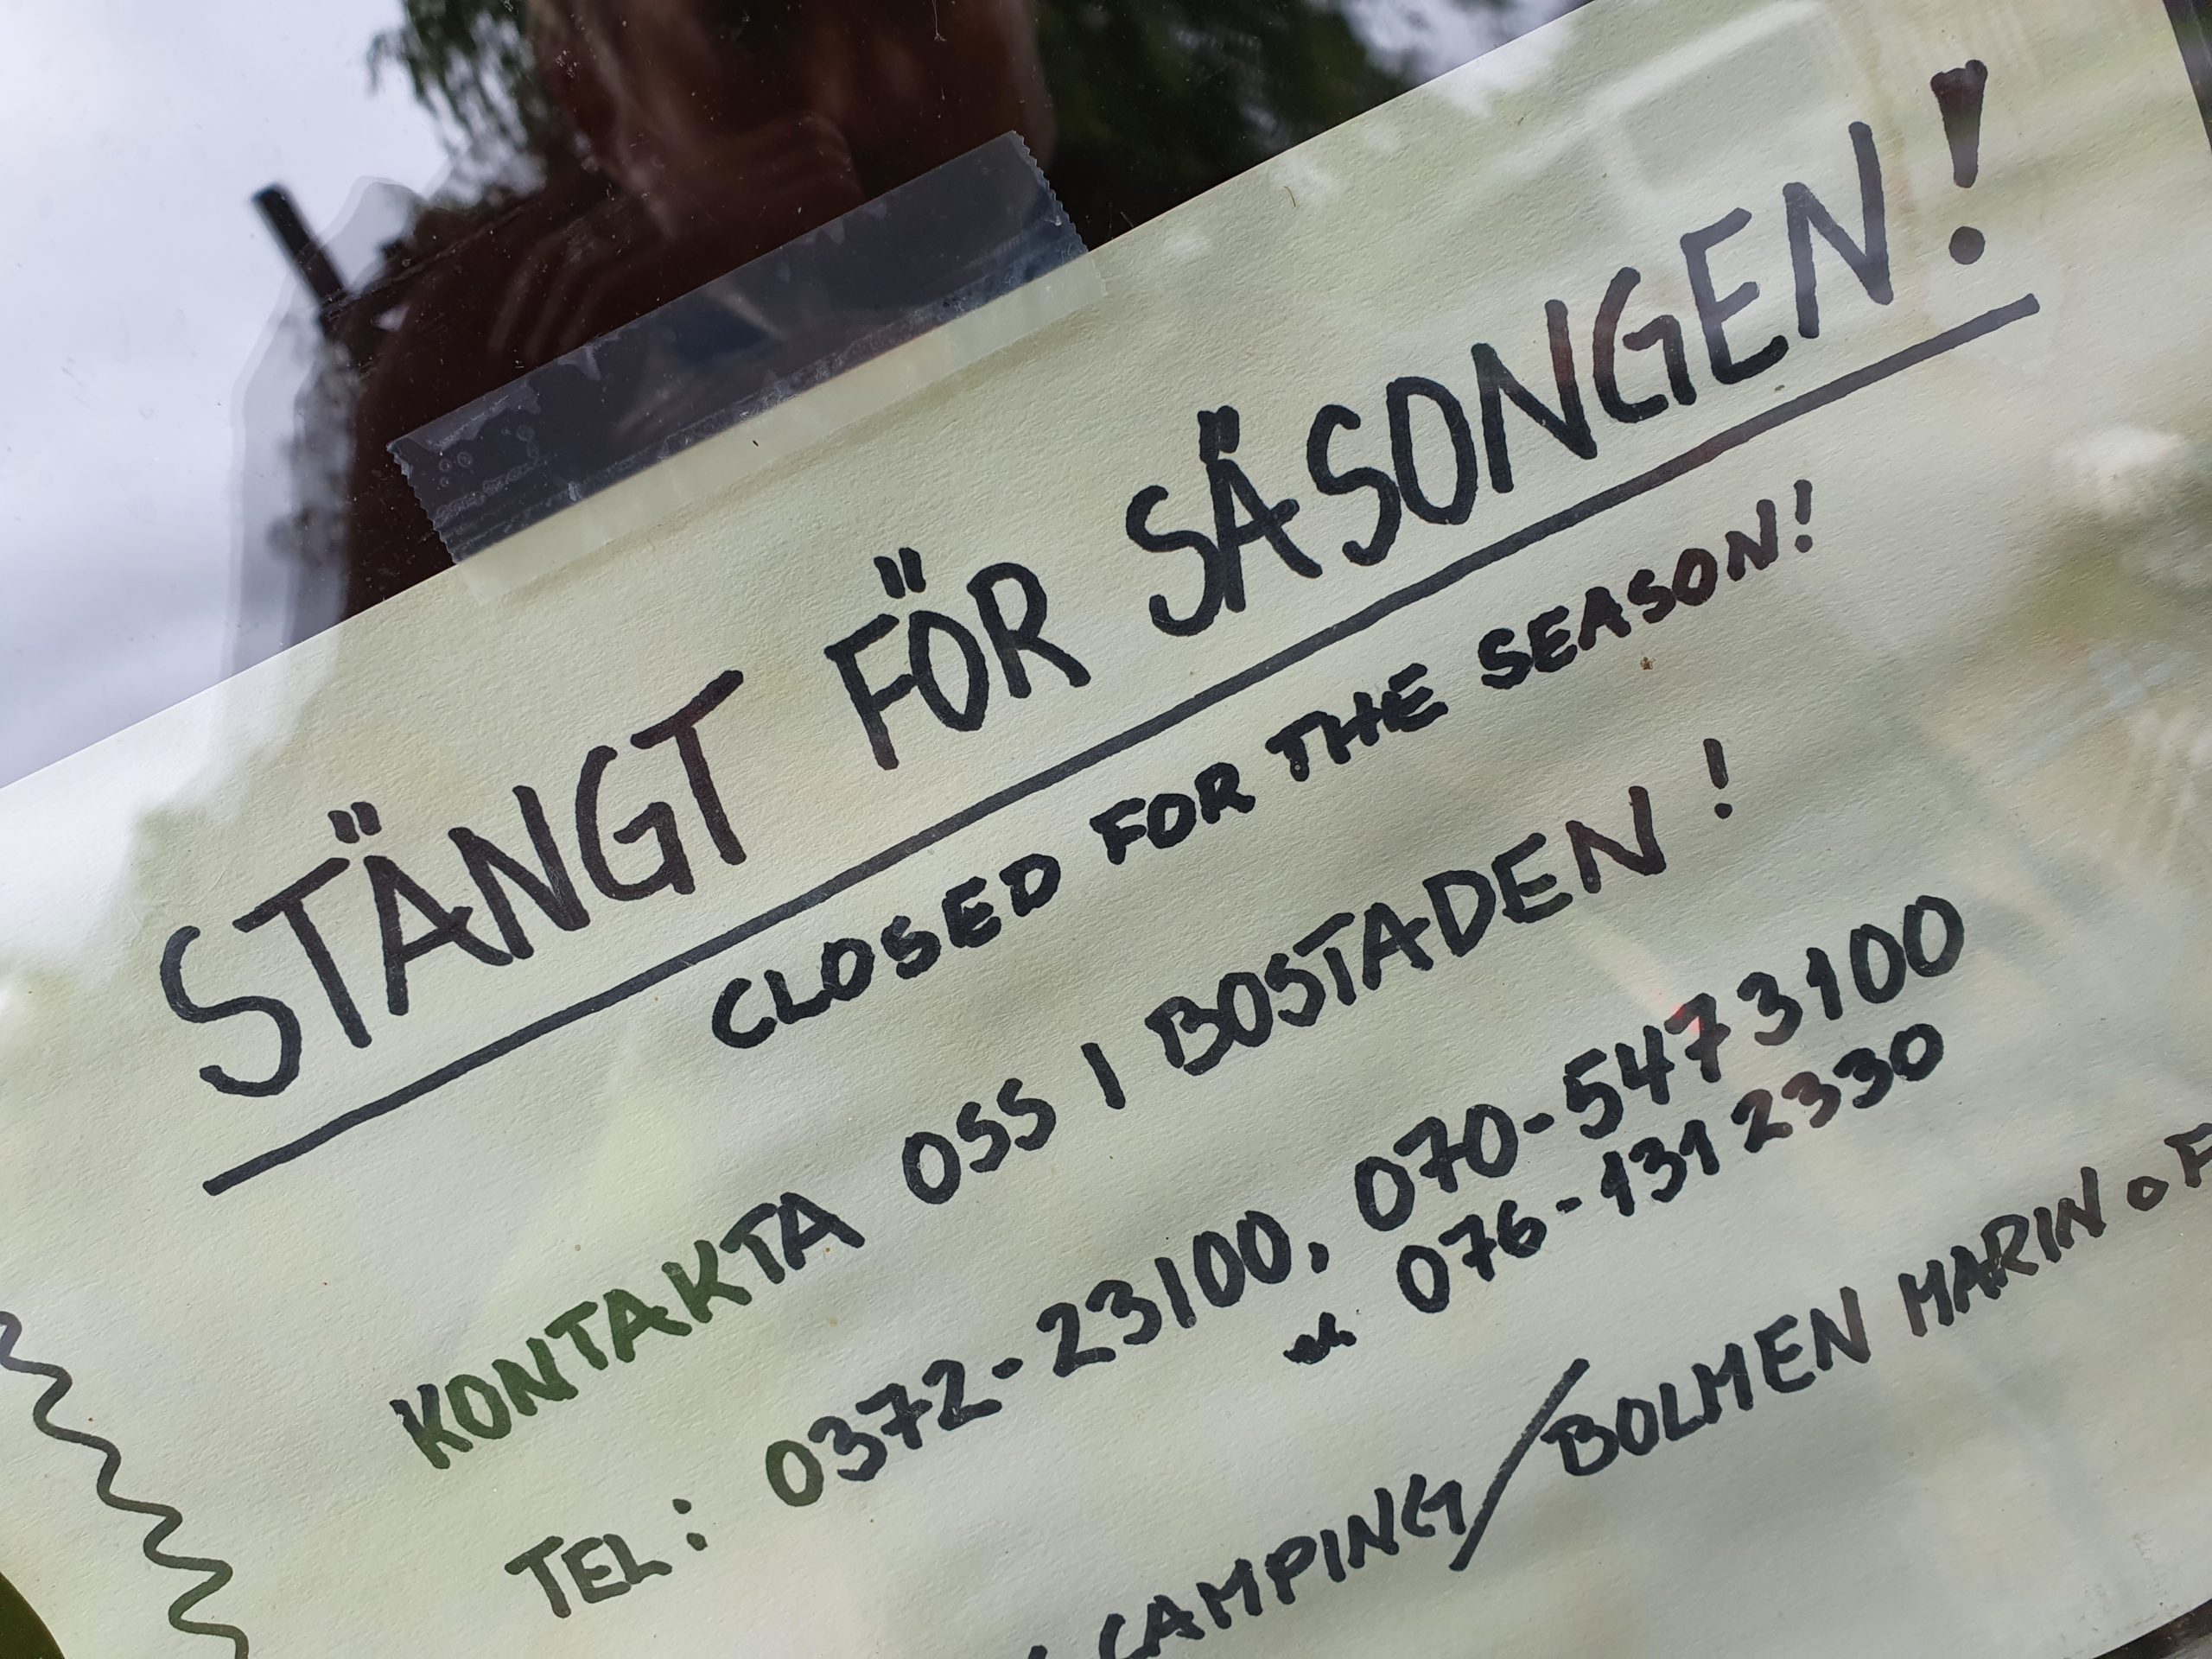 STÄNGT FÖR SÄSONGEN!
CLOSED FOR THE SEASON!
KONTAKTA OSS I BOSTADEN!
TEL: 0372-23100, 070-5473100
076-1312330
CAMPING/BOLMEN MARIN o F